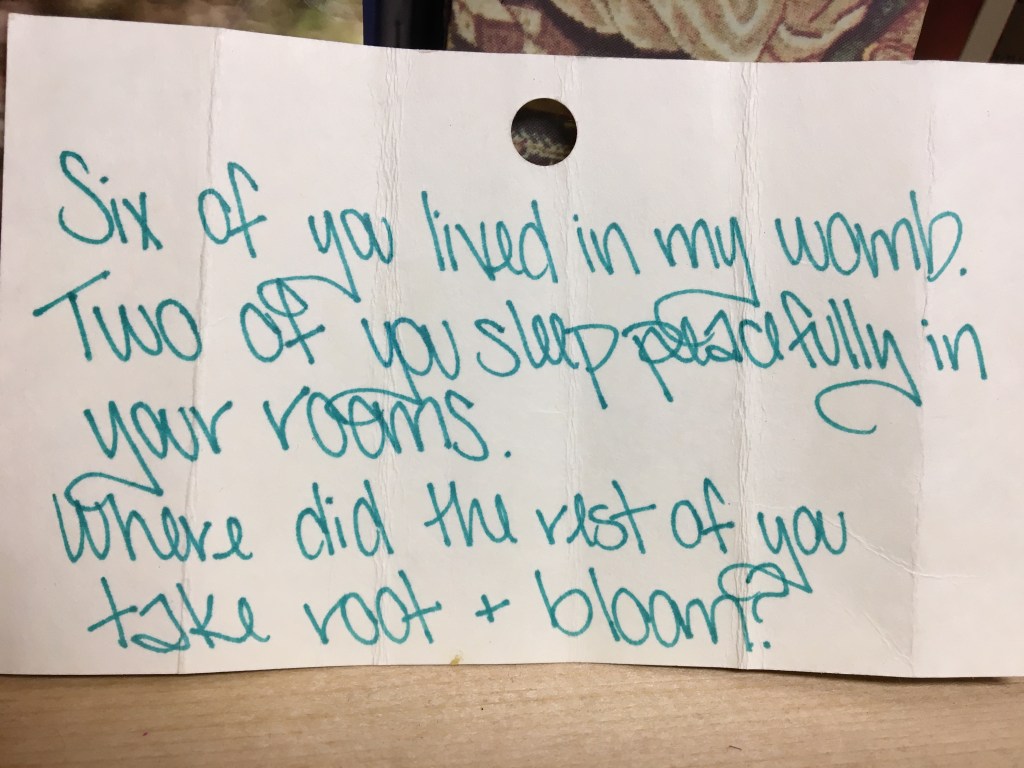 Six of you lived in my womb.
Two of you sleep peacefully in
your rooms.
Where did the rest of you
take root + bloom?